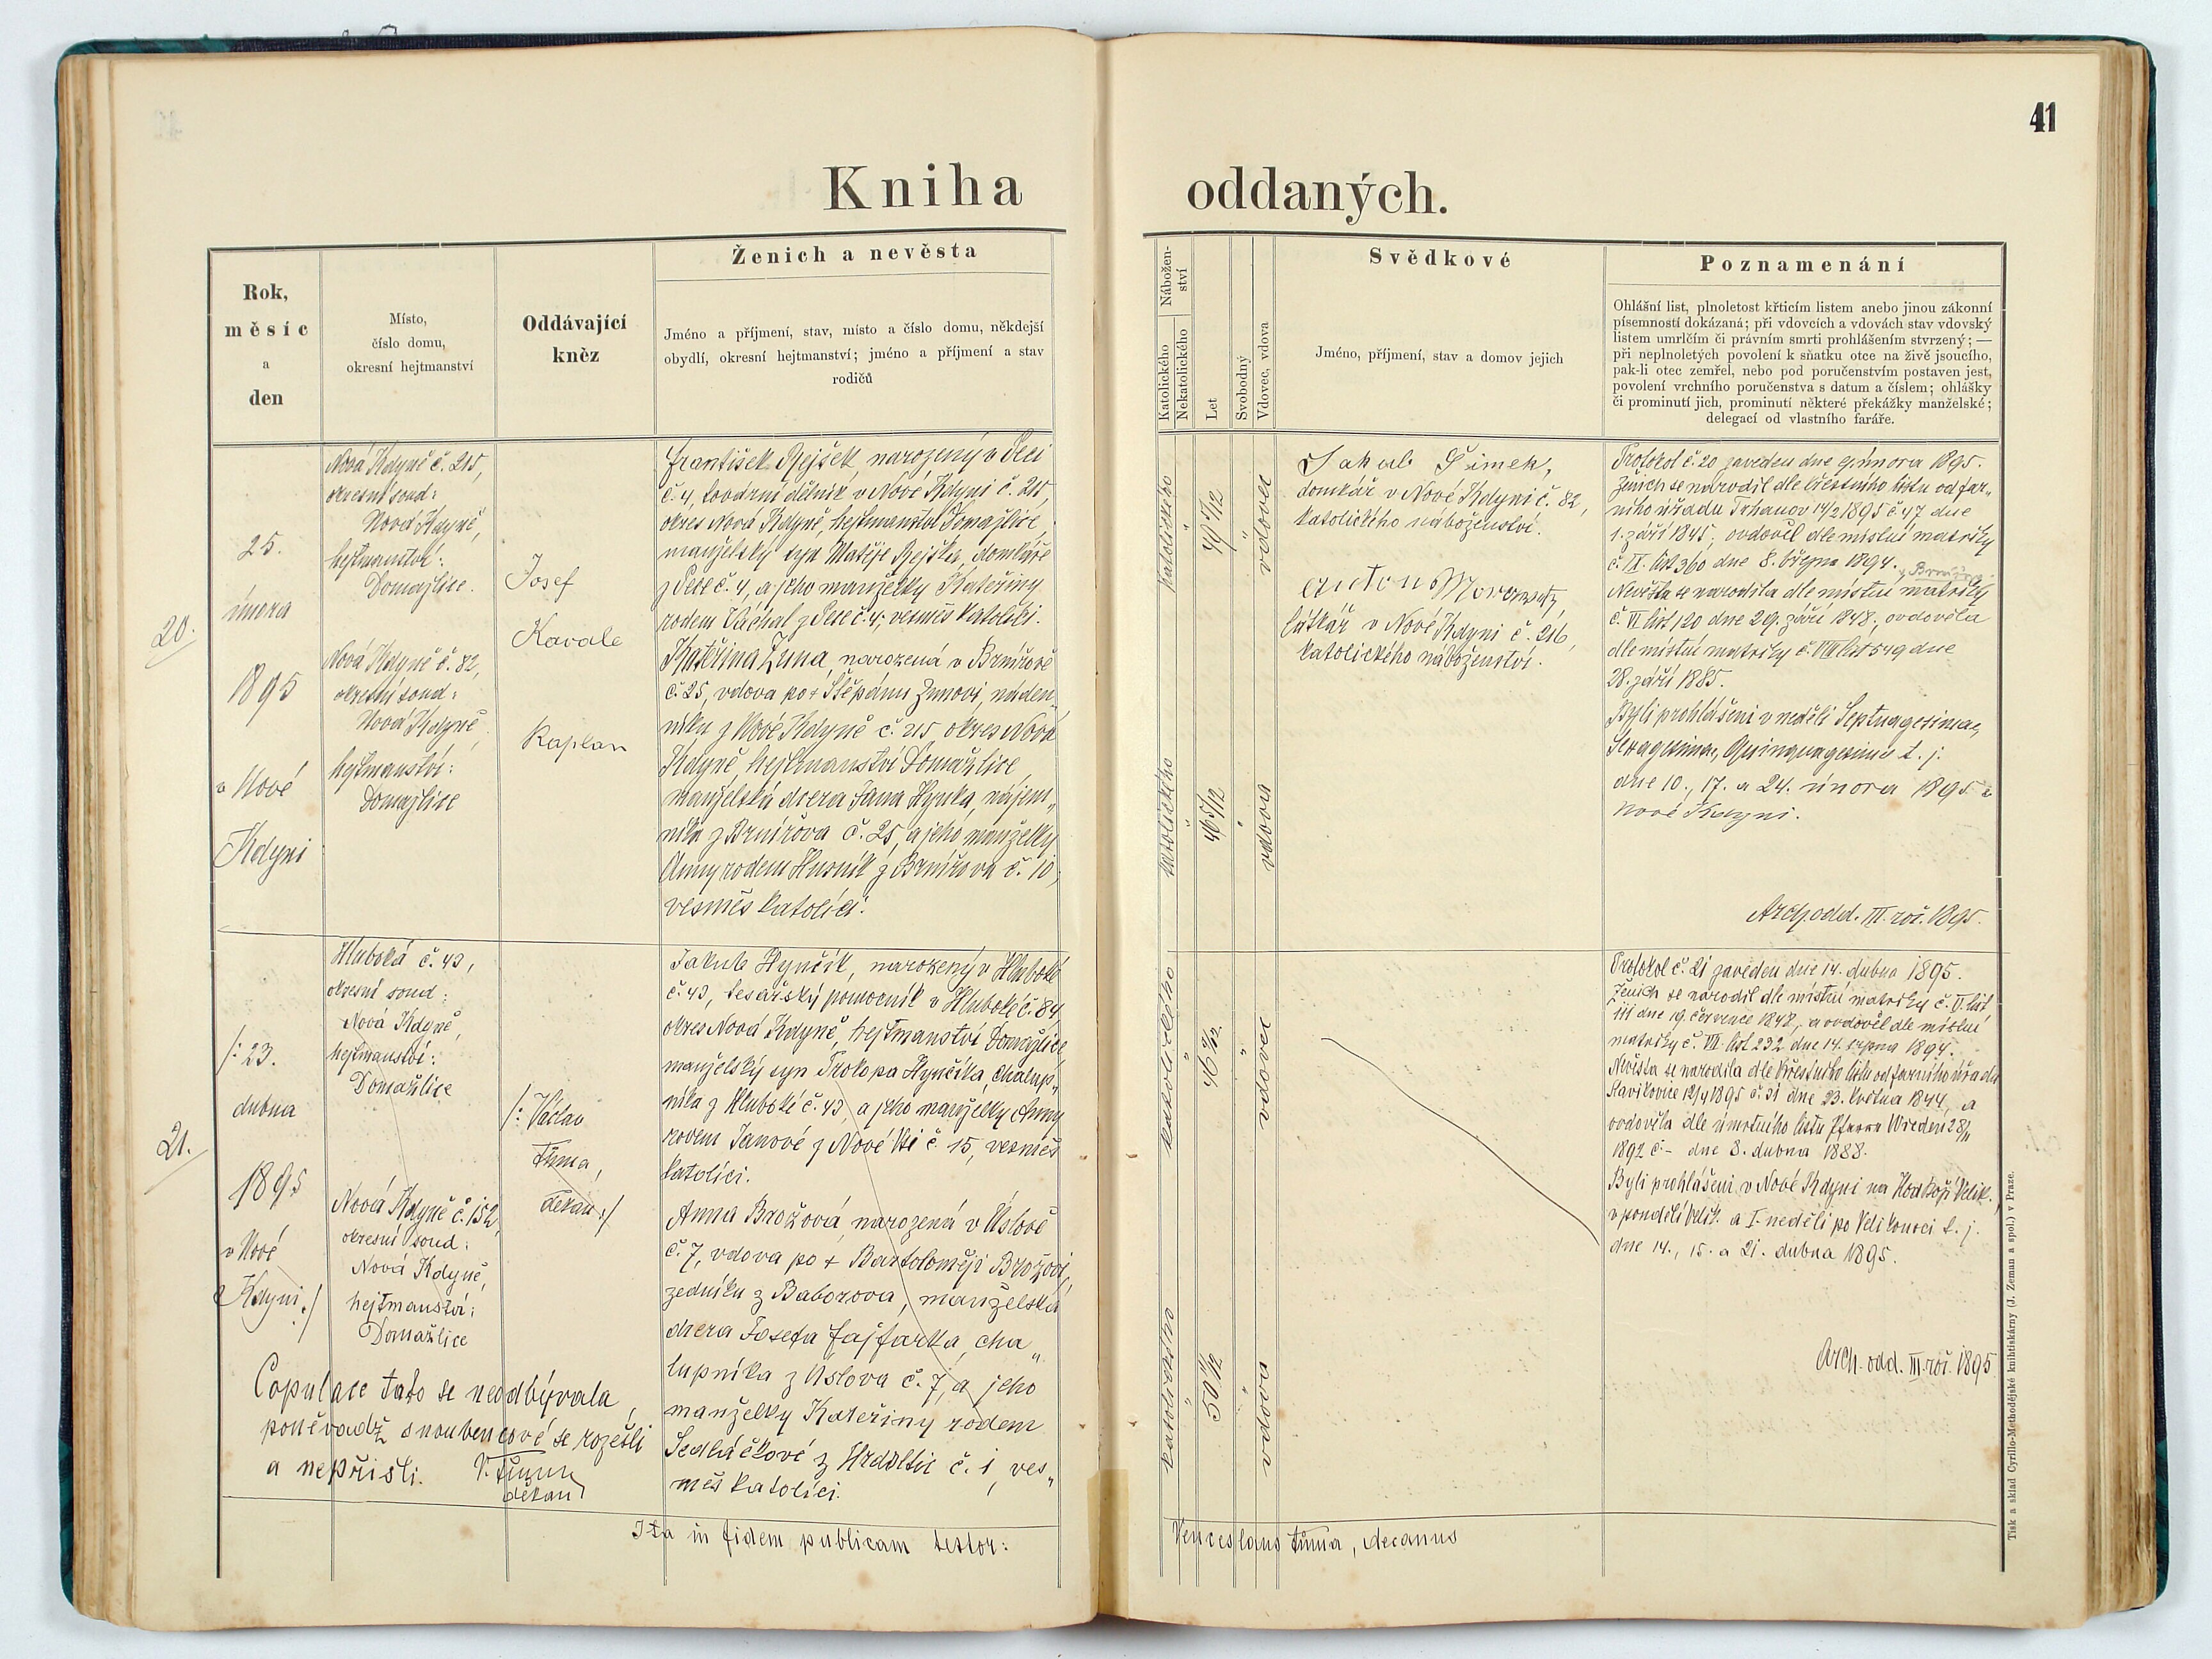 41
Kniha oddaných.
Rok,
měsíc
a
den
Místo,
číslo domu,
okresní hejtmanství
Oddávající
kněz
Ženich a nevěsta
Jméno a příjmení, stav, místo a číslo domu, někdejší
obydlí, okresní hejtmanství; jméno a příjmení a stav
rodičů
Nábožen-
ství
Katolického
Nekatolického
Let
Svobodný
Vdovec, vdova
Svědkové
Jméno, příjmení, stav a domov jejich
Poznamenání
Ohlášní list, plnoletost křticím listem anebo jinou zákonní
písemností dokázaná; při vdovcích a vdovách stav vdovský
listem umrlčím či právním smrti prohlášením stvrzený; —
při neplnoletých povolení k sňatku otce na živě jsoucího,
pak-li otec zemřel, nebo pod poručenstvím postaven jest,
povolení vrchního poručenstva s datum a číslem; ohlášky
či prominutí jich, prominutí některé překážky manželské;
delegací od vlastního faráře.
20.
25.
února
1895
v Nové
Kdyni
Nová Kdyně č. 215,
okresní soud:
Nová Kdyně,
hejtmanství:
Domažlice.
Nová Kdyně č. 82,
okresní soud:
Nová Kdyně,
hejtmanství:
Domažlice
Josef
Kavale
Kaplan
František Rejšek, narozený v Peci
č. 4, tovární dělník v Nové Kdyni č. 215,
okres Nová Kdyně, hejtmanství Domažlice,
manželský syn Matěje Rejška, domkáře
z Pece č. 4, a jeho manželky Kateřiny
rodem Váchal z Pece č. 4; vesměs katolíci.
Kateřina Zuna, narozená v Brnířově
č. 25, vdova po + Štěpánu Zunovi, náden„
níku z Nové Kdyně č. 215 okres Nová
Kdyně, hejtmanství Domažlice,
manželská dcera Jana Hynka, nájem„
níka z Brnířova č. 25, a jeho manželky
Anny rodem Husník z Brnířova č. 10;
vesměs katolíci.
katolického
"
49 5/12
"
vdovec
katolického
"
46 5/12
"
vdova
Jakub Šimek,
domkář v Nové Kdyni č. 82,
katolického náboženství.
Anton
látkář v Nové Kdyni č. 216,
katolického náboženství.
Protokol č. 20 zaveden dne 9. února 1895.
Ženich se narodil dle křestního listu od far„
ního úřadu Trhanov 14/2 1895 č. 47 dne
1. září 1845; ovdověl dle místní matriky
č. IX. list 360 dne 8. března 1894.
Nevěsta se narodila dle místní matriky
č. VI list 120 dne 29. září 1848, ovdověla
dle místní matriky č. VIII list 549 dne
28. září 1885.
Byli prohlášeni v neděli Septuagesimae,
Sexagesimae, Quinquagesimae t. j.
dne 10., 17. a 24. února 1895 v
Nové Kdyni.
Arch. odd. III. roč. 1895.
21.
/: 23.
dubna
1895
v Nové
Kdyni :/
Hluboká č. 43,
okresní soud:
Nová Kdyně,
hejtmanství:
Domažlice
Nová Kdyně č. 152,
okresní soud:
Nová Kdyně,
hejtmanství:
Domažlice
/: Václav
Tůma,
děkan :/
Jakub Hynčík, narozený v Hluboké
č. 43, tesařský pomocník v Hluboké č. 84
okres Nová Kdyně, hejtmanství Domažlice,
manželský syn Prokopa Hynčíka, chalup„
níka z Hluboké č. 43, a jeho manželky Anny
rodem Janové z Nové Vsi č 15, vesměs
katolíci.
Anna Brožová, narozená v Úslově
č. 7, vdova po + Bartoloměji Brožovi,
zedníku z Baborova, manželská
dcera Josefa Fajfarka, cha„
lupníka z Úslova č. 7, a jeho
manželky Kateřiny rodem
Sedláčkové z Hrdoltic č. 1, ves„
měs katolíci.
katolického
"
46 9/12
"
vdovec
katolického
"
50 11/12
"
vdova
Protokol č. 21 zaveden dne 14. dubna 1895.
Ženich se narodil dle místní matriky č. V. list
111 dne 19. července 1848, a ovdověl dle místní
matriky č. VII. list 232 dne 14. srpna 1894.
Nevěsta se narodila dle křestního listu od farního úřadu
Slavíkovice 12/4 1895 č. 31 dne 23. května 1844, a
ovdověla dle úmrtního listu Wieden 28/11
1892 č. - dne 3. dubna 1888.
Byli prohlášeni v Nové Kdyni na Hod Boží Velik.,
v pondělí Velik. a I. neděli po Velikonoci t. j.
dne 14., 15. a 21. dubna 1895.
Arch. odd. III. roč. 1895
Copulace tato se neodbývala,
poněvadž snoubencové se rozešli
a nepřišli. V. Tůma
děkan
Ita in fidem publicam testor: Venceslaus Tůma, decanus
Tisk a sklad Cyrillo-Methodějské knihtiskárny (J. Zeman a spol.) v Praze.